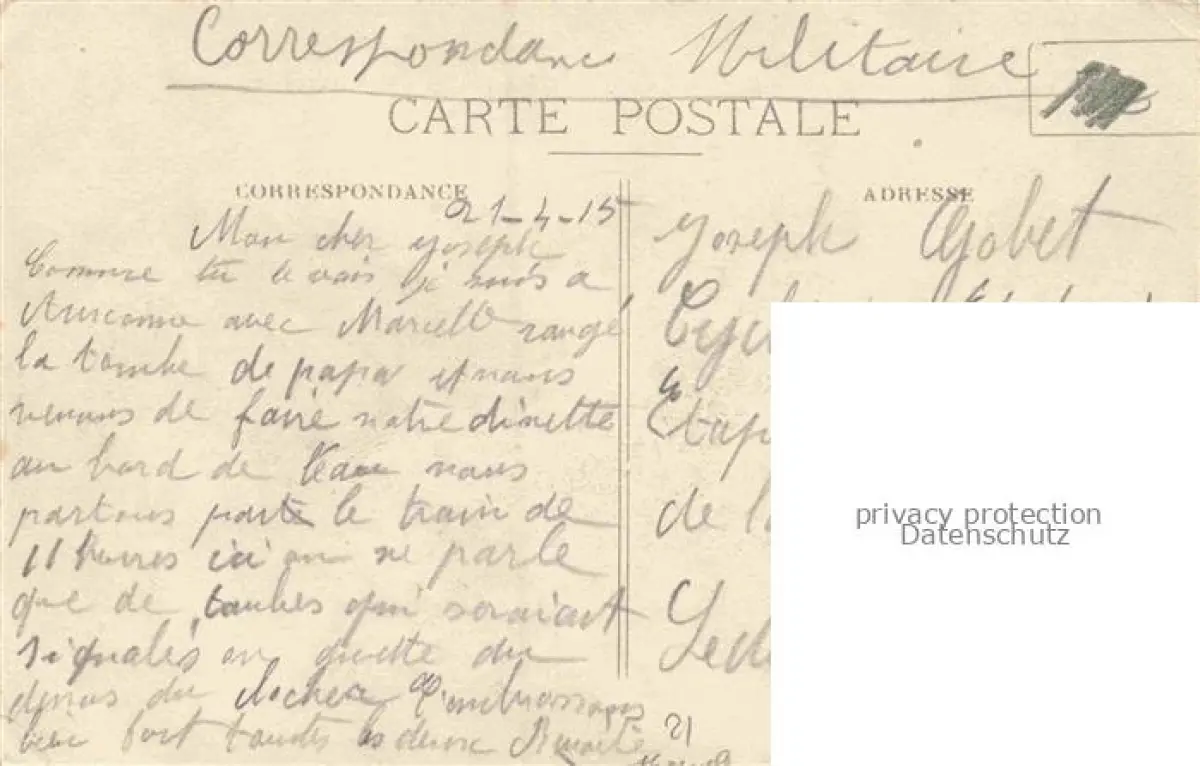 Correspondance Militaire
CARTE POSTALE
CORRESPONDANCE
21-4-15
Mon cher Joseph
Comme tu le vois je suis a
avec Marcelle rangé
la tombe de papa et nous
venons de faire notre dinette
au bord de l'eau nous
partons par le train de
11 heures ici on ne parle
que de taubes qui seraient
signalés on guette du
dessus du clocher T'embrassons
bien fort toutes les deux
21
ADRESSE
Joseph Gobet
Etap
de l
privacy protection
Datenschutz